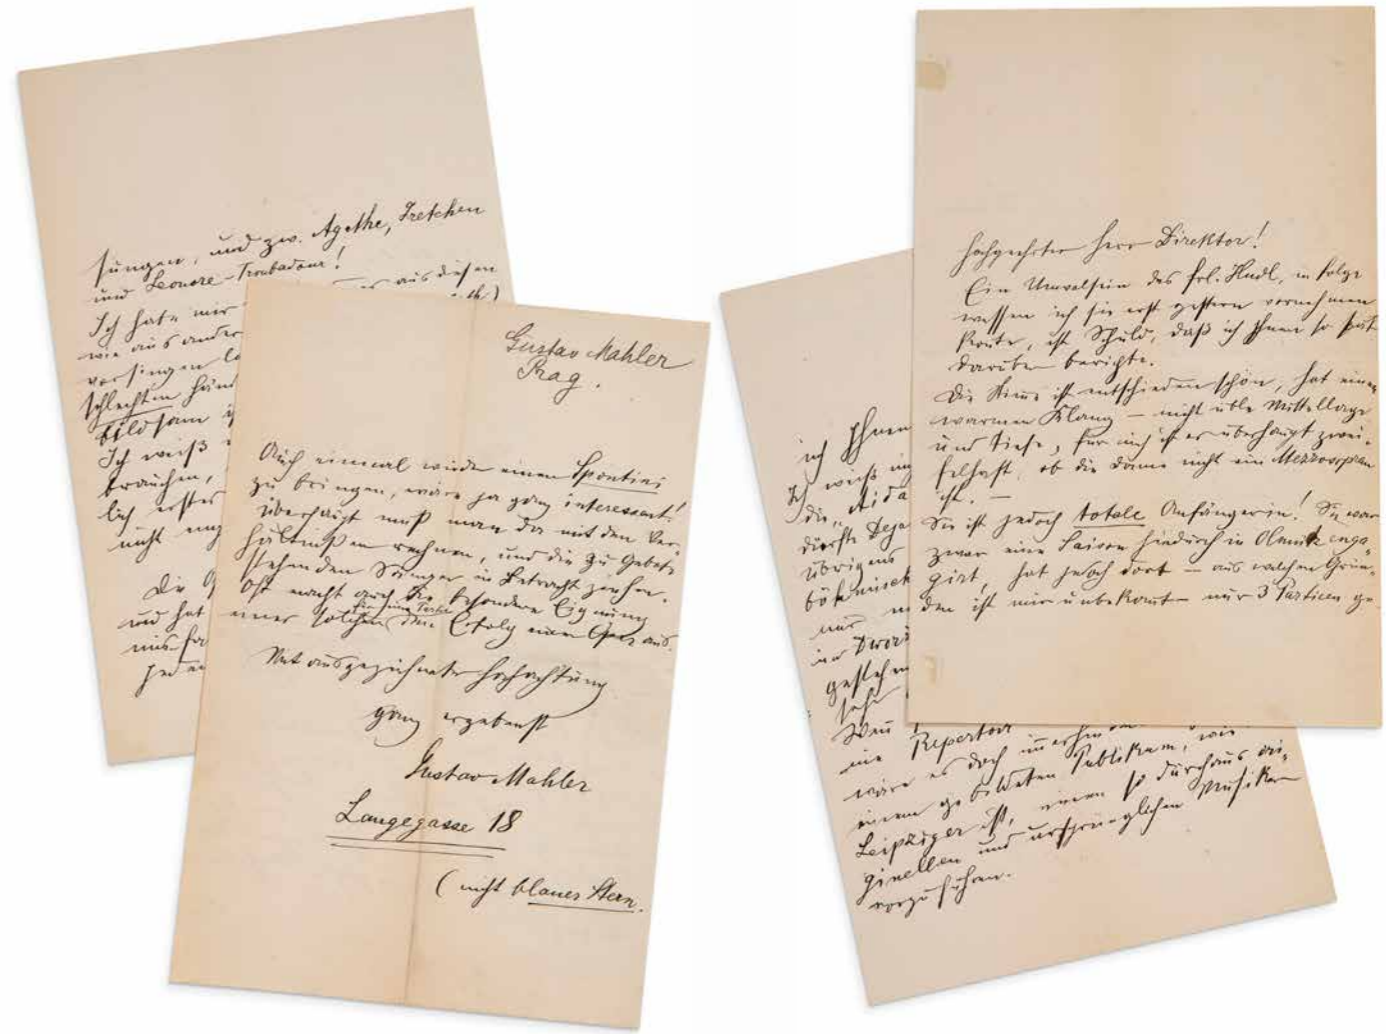 singen, und zw. Agathe, Gretchen
und Leonore-Troubadour!
Ich habe mir aus diesen
wie aus ander
vorsingen la
schlechten Händ
bildsam i
Ich weiß
brauchen,
lich erster
nicht eng
Die
und hat
jeden
Gustav Mahler
Prag.
Auch einmal wieder einen Spontini
zu bringen, wäre ja ganz interessant!
Überhaupt muß man da mit den Ver-
hältnißen rechnen, und die zu Gebote
stehenden Sänger in Betracht ziehen.
Oft macht auch die besondere Eignung
eines solchen für seine Partie den Erfolg einer Oper aus.
Mit ausgezeichneter Hochachtung
ganz ergebenst
Gustav Mahler
Langegasse 18
(nicht blauer Stern.
Hochgeehrter Herr Direktor!
Ein Unwolsein des Frl. Hudl, in folge
wessen ich sie erst gestern vernehmen
konte, ist Schuld, daß ich Ihnen so spät
darüber berichte.
Die Stime ist entschieden schön, hat einen
warmen Klang – nicht üble Mittellage
und Tiefe, für mich ist es überhaupt zwei-
felhaft, ob die Dame nicht ein Mezzosopran
ist. –
Sie ist jedoch totale Anfängerin! Sie war
zwar eine Saison hindurch in Olmütz enga-
girt, hat jedoch dort – aus welchen Grün-
den ist mir unbekannt – nur 3 Partieen ge-
ich Ihnen
Ich weiß
die „Aida
dürfte
übrigens
böhmisch
nur
gestehn
sehr
Wen
ins Repertoir
wäre es doch imerhin
einem gebildeten Publikum, wie
Leipziger ist, einen so durchaus ori-
ginellen und ursprünglichen Musiker
vorzuführen.